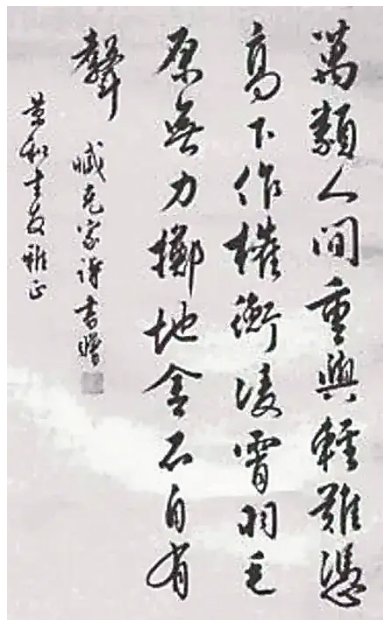 萬類人间重與輕難憑
高下作權衡凌霄羽毛
原無力擲地金石自有
聲
臧克家诗書贈
和友雅正